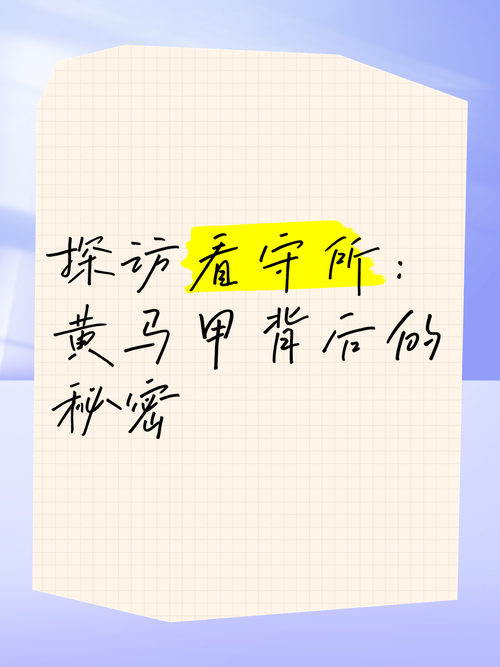 探访看守所：
黄马甲背后的
秘密